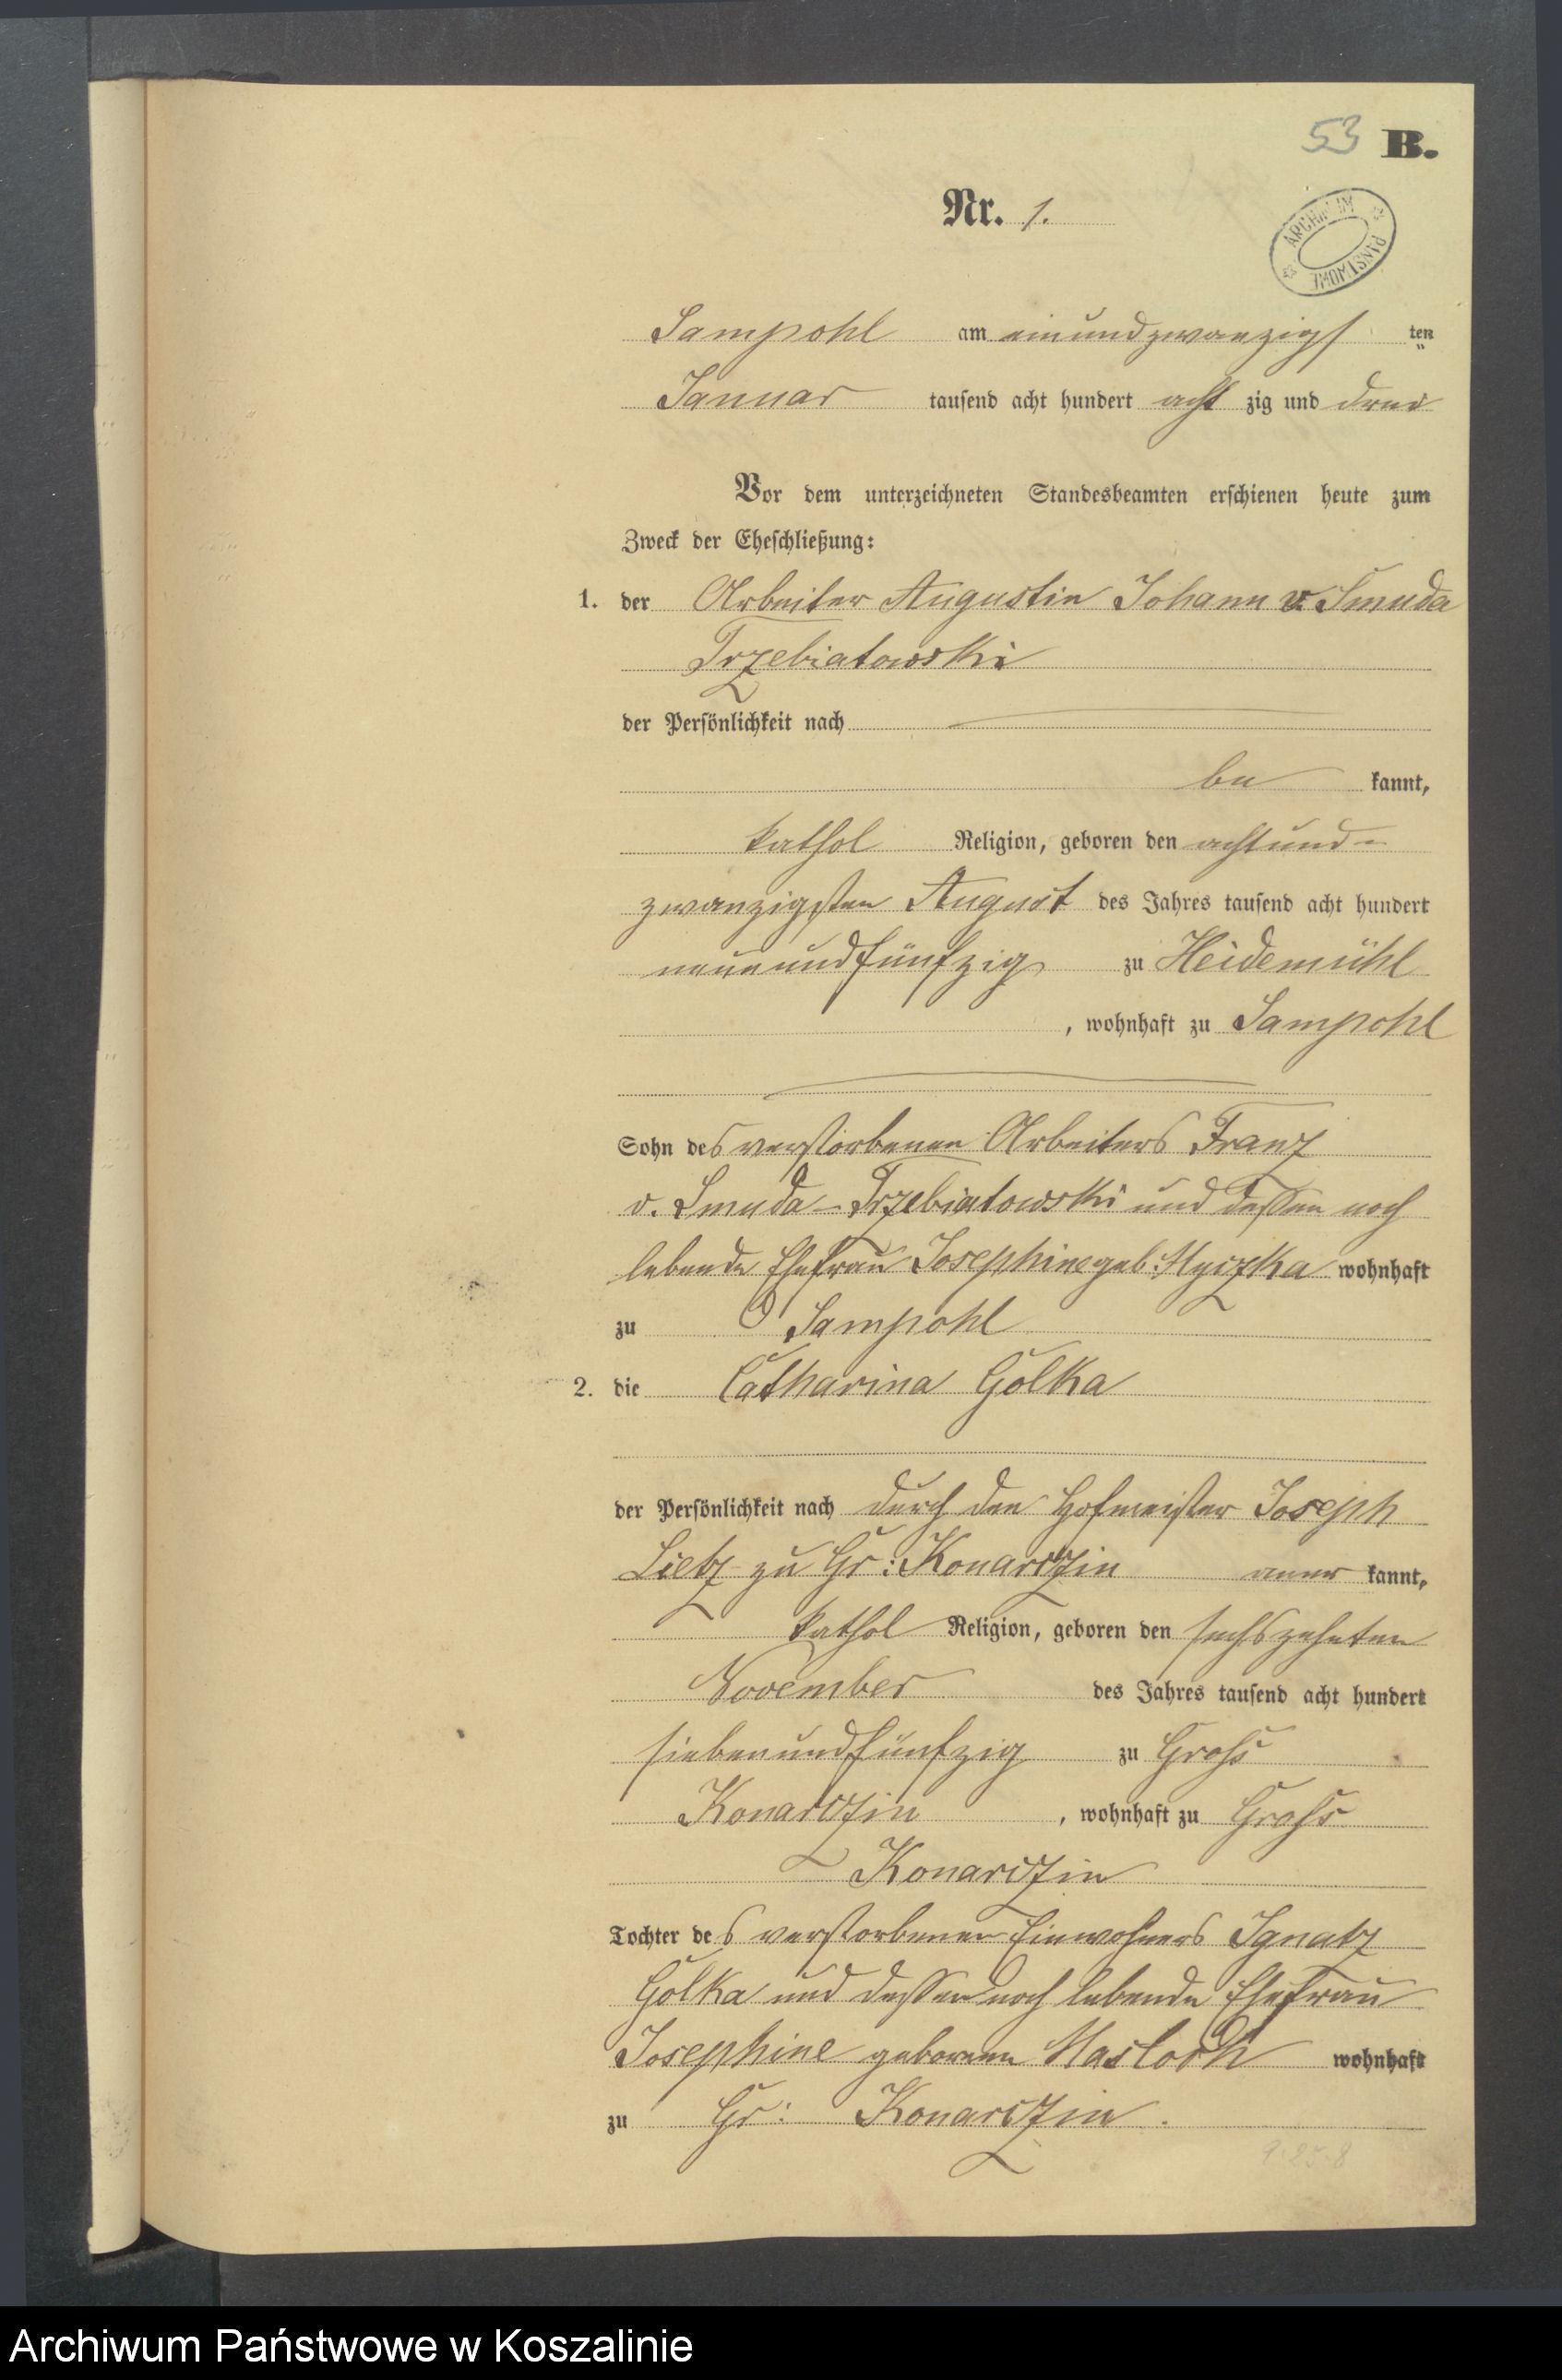 53 B.
Nr. 1.
ARCHIWUM PAŃSTWOWE
Sampohl am einundzwanzigs ten
Januar tausend acht hundert acht zig und drei
Vor dem unterzeichneten Standesbeamten erschienen heute zum
Zweck der Eheschließung:
1. der Arbeiter Augustin Johann v. Smuda
Trzebiatowski
der Persönlichkeit nach
be kannt,
kathol Religion, geboren den achtund-
zwanzigsten August des Jahres tausend acht hundert
neunundfünfzig zu Heidemühl
, wohnhaft zu Sampohl
Sohn des verstorbenen Arbeiters Franz
v. Smuda-Trzebiatowski und dessen noch
lebende Ehefrau Josephine geb. Myszka wohnhaft
zu Sampohl
2. die Catharina Golka
der Persönlichkeit nach durch den Hofmeister Joseph
Lietz zu Gr: Konarczin aner kannt,
kathol Religion, geboren den sechszehnten
November des Jahres tausend acht hundert
siebenundfünfzig zu Gross
Konarczin , wohnhaft zu Gross
Konarczin
Tochter des verstorbenen Einwohners Ignatz
Golka und dessen noch lebende Ehefrau
Josephine geborene wohnhaft
zu Gr: Konarczin.
Archiwum Państwowe w Koszalinie